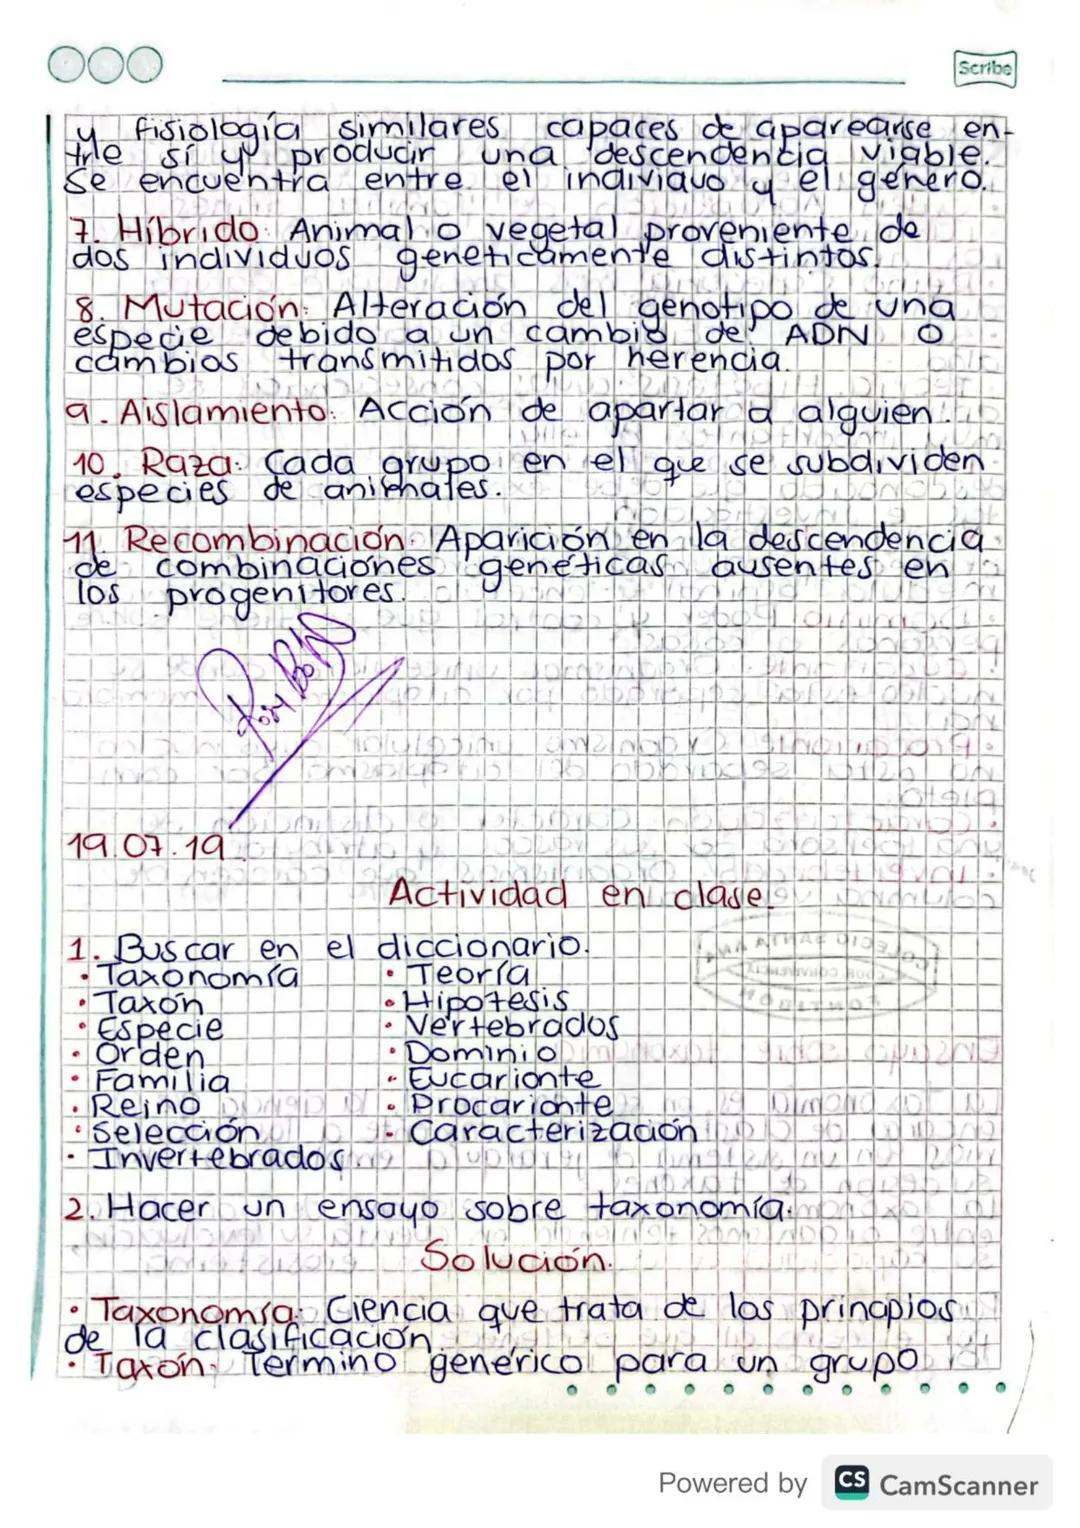 Scribe
y fisiología similares capaces de aparearse en-
tre sí y producir una descendencia viable.
Se encuentra entre el individuo y el género.
7. Híbrido: Animal o vegetal proveniente de
dos individuos geneticamente distintos.
8. Mutación: Alteración del genotipo de una
especie debido a un cambio de ADN o
cambios transmitidos por herencia.
9. Aislamiento: Acción de apartar a alguien.
10. Raza: Cada grupo en el que se subdividen
especies de animales.
11. Recombinación: Aparición en la descendencia
de combinaciones genéticas ausentes en
los progenitores.
19.07.19
Actividad en clase.
1. Buscar en el diccionario.
• Taxonomía • Teoría
• Taxón • Hipotesis
• Especie • Vertebrados
• Orden • Dominio
• Familia • Eucarionte
• Reino • Procarionte
• Selección • Caracterización
• Invertebrados
2. Hacer un ensayo sobre taxonomía.
Solución.
• Taxonomía: Ciencia que trata de los principios
de la clasificación
• Taxón: Termino genérico para un grupo
Powered by CS CamScanner